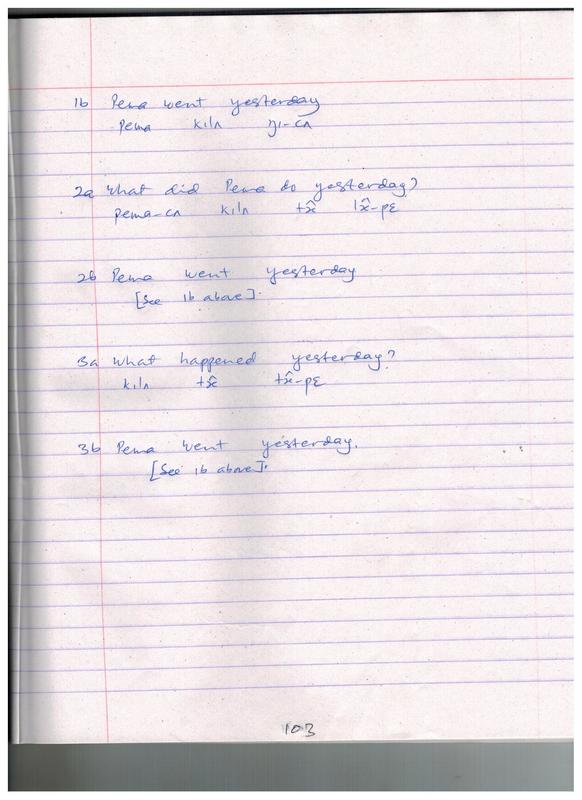 1b Pema went yesterday
Pema kilʌ ŋi-cʌ
2a What did Pema do yesterday?
Pema-cʌ kilʌ
2b Pema went yesterday
[See 1b above].
3a What happened yesterday?
kilʌ
3b Pema went yesterday.
[See 1b above].
103